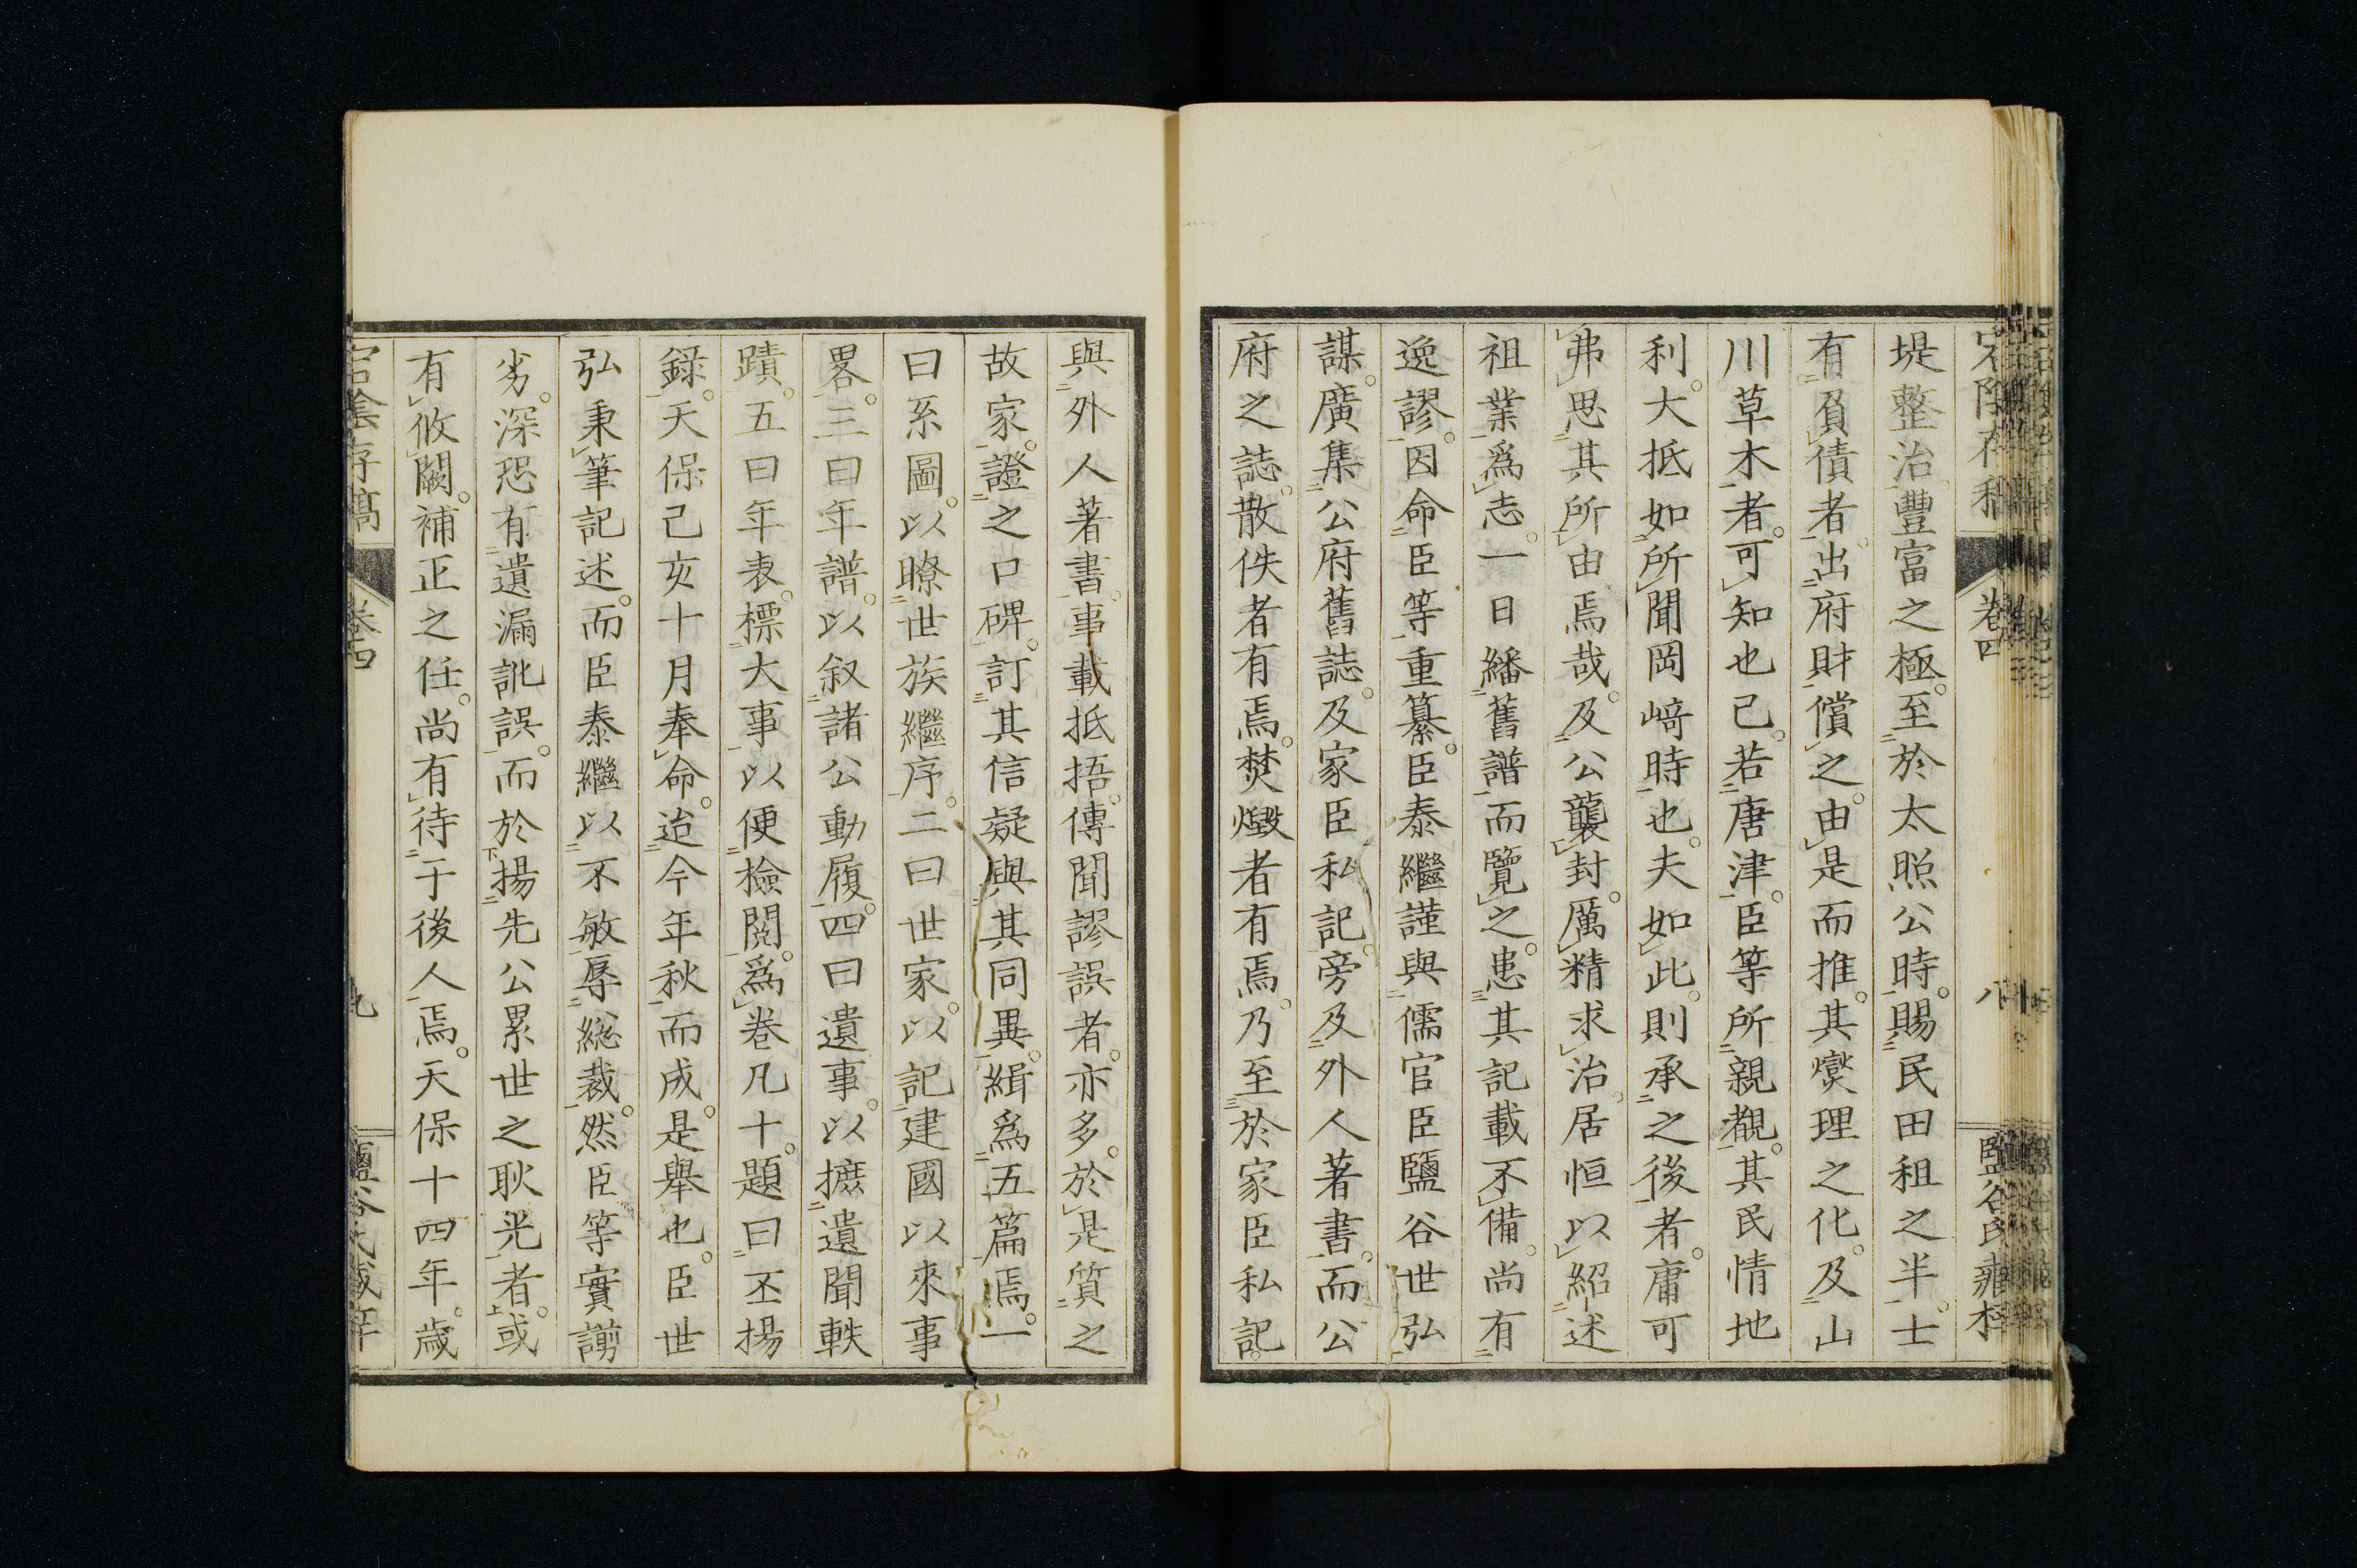 堤整治。豐富之極。至於太照公時。賜民田租之半。士
有負債者。出府財償之。由是而推。其爕理之化。及山
川草木者。可知也已。若唐津。臣等所親覩。其民情地
利。大抵如所聞岡﨑時也。夫如此。則承之後者。庸可
弗思其所由焉哉。及公襲封。厲精求治。居恒以紹述
祖業爲志。一日繙舊譜而覽之。患其記載不備。尚有
逸謬。因命臣等重纂。臣泰繼謹與儒官臣鹽谷世弘
謀。廣集公府舊誌。及家臣私記。旁及外人著書。而公
府之誌。散佚者有焉。焚燬者有焉。乃至於家臣私記。
卷四
八
與外人著書。事載抵捂。傳聞謬誤者。亦多。於是質之
故家。證之口碑。訂其信疑。與其同異。緝爲五篇焉。一
曰系圖。以瞭世族繼序。二曰世家。以記建國以來事
畧。三曰年譜。以叙諸公動履。四曰遺事。以摭遺聞軼
蹟。五曰年表。標大事以便檢閱。爲卷凡十。題曰丕揚
錄。天保己亥十月奉命。迨今年秋而成。是舉也。臣世
弘秉筆記述。而臣泰繼以不敏辱總裁。然臣等實謭
劣。深恐有遺漏訛誤。而於揚先公累世之耿光者。或
有攸闕。補正之任。尚有待于後人焉。天保十四年。歲
宕陰存稿
卷四
九